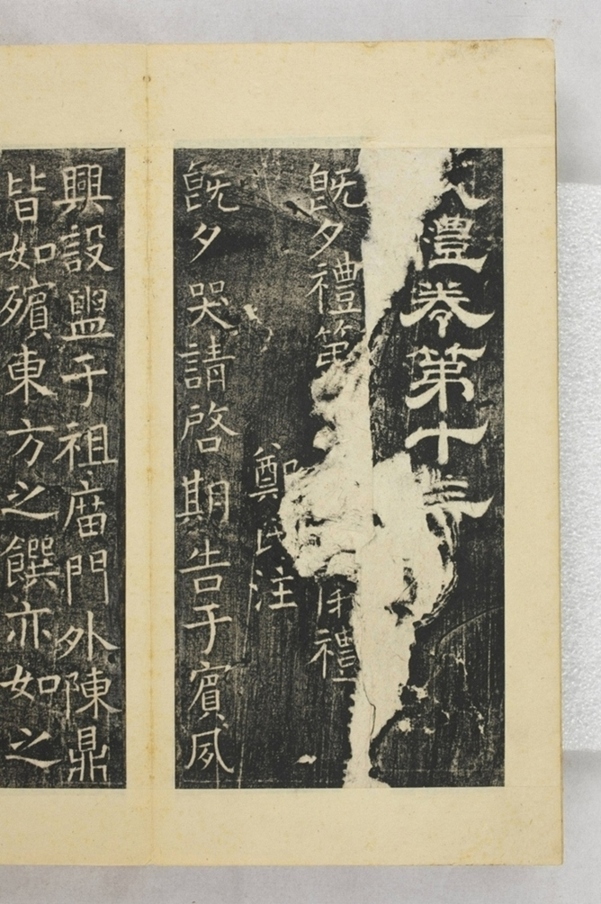 禮卷第十三
既夕禮第　　　禮
鄭氏注
既夕哭請啓期告于賓夙
興設盥于祖廟門外陳鼎
皆如殯東方之饌亦如之